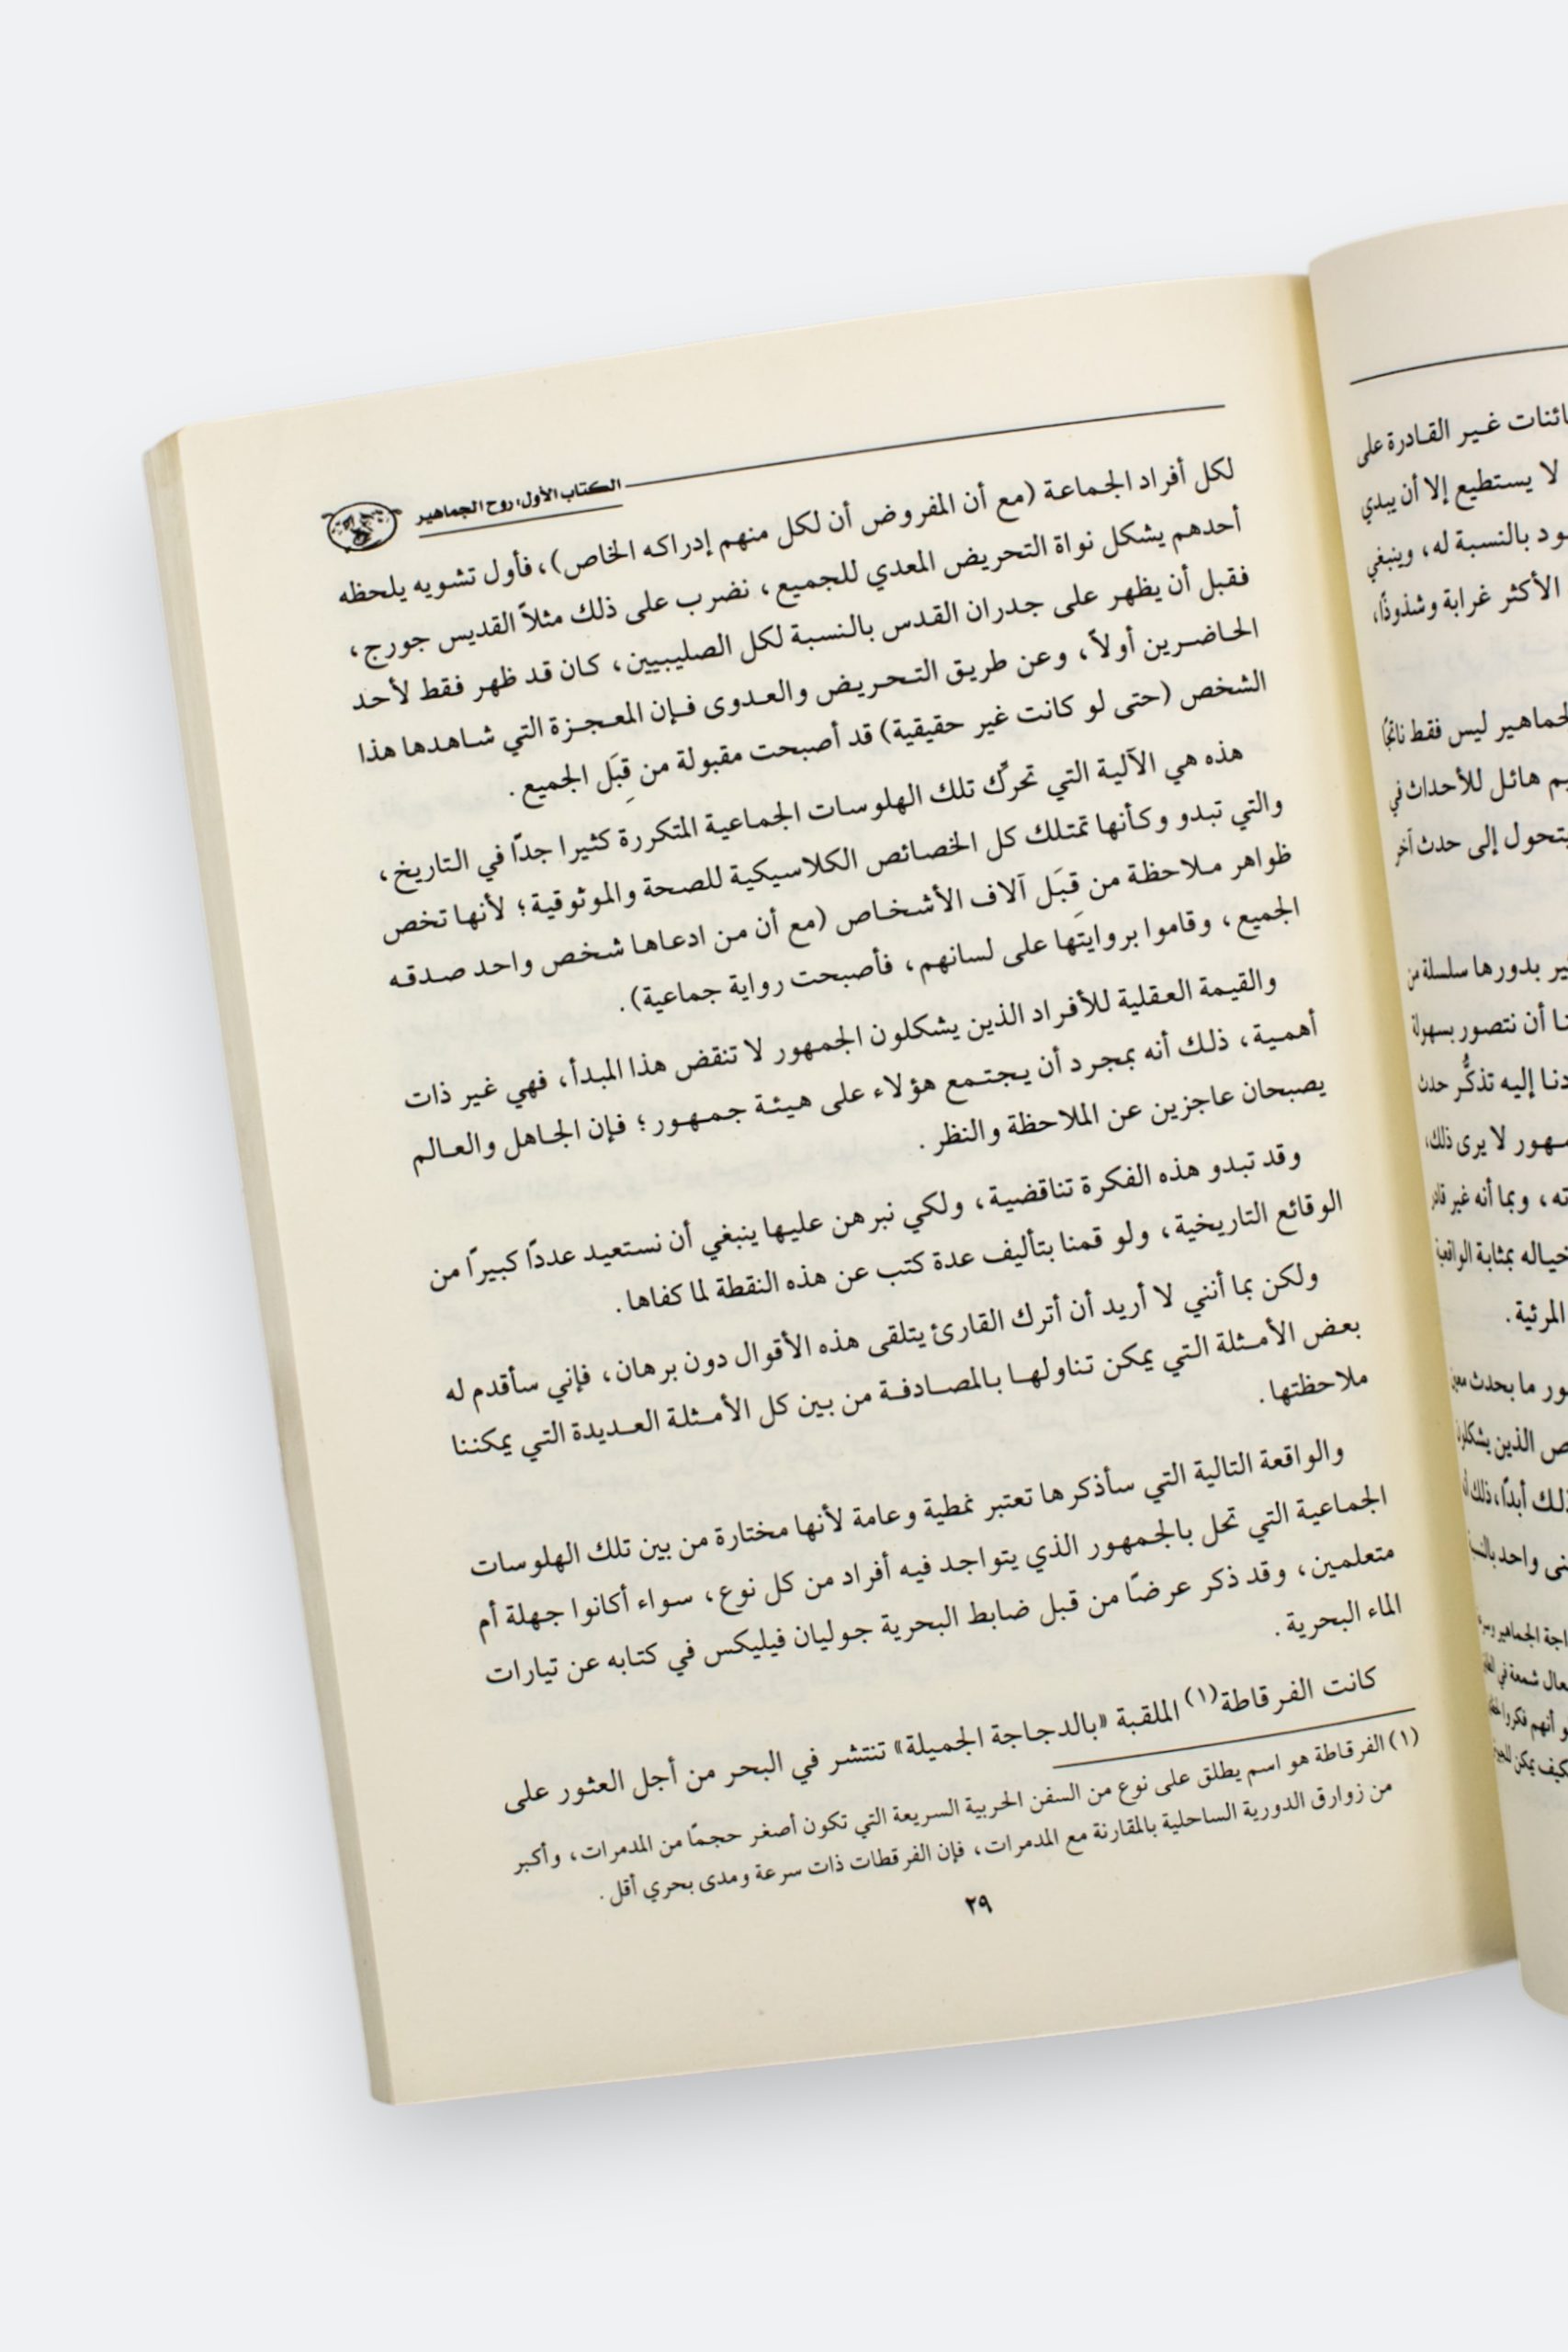 الكتاب الأول: روح الجماهير
لكل أفراد الجماعة (مع أن المفروض أن لكل منهم إدراكه الخاص)، فأول تشويه يلحظه
أحدهم يشكل نواة التحريض المعدي للجميع، نضرب على ذلك مثلاً القديس جورج،
فقبل أن يظهر على جدران القدس بالنسبة لكل الصليبيين، كان قد ظهر فقط لأحد
الحاضرين أولاً، وعن طريق التحريض والعدوى فإن المعجزة التي شاهدها هذا
الشخص (حتى لو كانت غير حقيقية) قد أصبحت مقبولة من قِبَل الجميع.
هذه هي الآلية التي تحرِّك تلك الهلوسات الجماعية المتكررة كثيرا جدًا في التاريخ،
والتي تبدو وكأنها تمتلك كل الخصائص الكلاسيكية للصحة والموثوقية؛ لأنها تخص
ظواهر ملاحظة من قِبَل آلاف الأشخاص (مع أن من ادعاها شخص واحد صدقه
الجميع، وقاموا بروايتها على لسانهم، فأصبحت رواية جماعية).
والقيمة العقلية للأفراد الذين يشكلون الجمهور لا تنقض هذا المبدأ، فهي غير ذات
أهمية، ذلك أنه بمجرد أن يجتمع هؤلاء على هيئة جمهور؛ فإن الجاهل والعالم
يصبحان عاجزين عن الملاحظة والنظر.
وقد تبدو هذه الفكرة تناقضية، ولكي نبرهن عليها ينبغي أن نستعيد عددًا كبيرًا من
الوقائع التاريخية، ولو قمنا بتأليف عدة كتب عن هذه النقطة لما كفاها.
ولكن بما أنني لا أريد أن أترك القارئ يتلقى هذه الأقوال دون برهان، فإني سأقدم له
بعض الأمثلة التي يمكن تناولها بالمصادفة من بين كل الأمثلة العديدة التي يمكننا
ملاحظتها.
والواقعة التالية التي سأذكرها تعتبر نمطية وعامة لأنها مختارة من بين تلك الهلوسات
الجماعية التي تحل بالجمهور الذي يتواجد فيه أفراد من كل نوع، سواء أكانوا جهلة أم
متعلمين، وقد ذكر عرضًا من قبل ضابط البحرية جوليان فيليكس في كتابه عن تيارات
الماء البحرية.
كانت الفرقاطة(١) الملقبة «بالدجاجة الجميلة» تنتشر في البحر من أجل العثور على
(١) الفرقاطة هو اسم يطلق على نوع من السفن الحربية السريعة التي تكون أصغر حجمًا من المدمرات، وأكبر
من زوارق الدورية الساحلية بالمقارنة مع المدمرات، فإن الفرقطات ذات سرعة ومدى بحري أقل.
٢٩
غير القادرة على
لا يستطيع إلا أن يبدي
بالنسبة له، وينبغي
الأكثر غرابة وشذوذًا،
ليس فقط ناتجًا
هائل للأحداث في
يتحول إلى حدث آخر
بدورها سلسلة من
أن نتصور بسهولة
إليه تذكُّر حدث
لا يرى ذلك،
وبما أنه غير قادر
خياله بمثابة الواقعية
المرئية.
ما يحدث
الذين يشكلون
أبدًا، ذلك
واحد
الجماهير
شمعة في
أنهم فكروا
يمكن